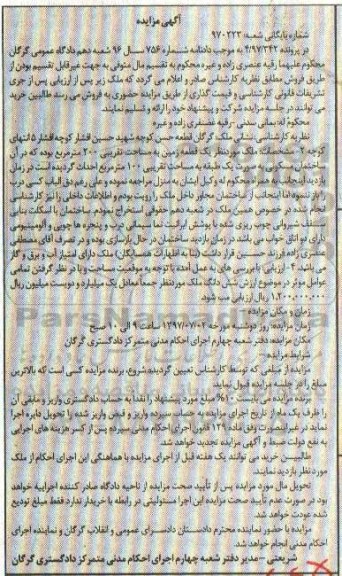 آگهی مزایده
شماره بایگانی شعبه: ۹۷۰۲۲۳
در پرونده ۴/۹۷/۳۴۲ به موجب دادنامه شماره ۷۵۶ سال ۹۶ شعبه دهم دادگاه عمومی گرگان
محکوم علیهما رقیه عنصری زاده و غیره محکوم به تقسیم مال متوفی به جهت غیرقابل تقسیم بودن از
طریق فروش مطابق نظریه کارشناس صادر و اعلام می گردد که ملک زیر پس از ارزیابی پس از جری
تشریفات قانونی کارشناسی و قیمت گذاری از طریق مزایده حضوری به فروش می رسد طالبین خرید
می توانند در جلسه مزایده شرکت و پیشنهاد خود را ارائه و تسلیم نمایند.
محکوم له: یمانی سدنی - رقیه عضنفری زاده و غیره
نظریه کارشناسی: نشانی ملک گرگان قطعه حسن کوچه شهید حسین افشار کوچه افشار ۵ انتهای
کوچه ۲- مشخصات ملک موردنظر یک قطعه زمین به مساحت تقریبی ۲۰۰ مترمربع بوده که در آن
ساختمان مسکونی به صورت یک طبقه به مساحت تقریبی ۱۰۰ مترمربع احداث گردیده است در زمان
بازدید اینجانب به همراه محکوم له وکیل ایشان به منزل مراجعه نموده و علی رغم دق الباب کسی درب
را باز ننمود اما اینجانب از ساختمان مجاور داخل ملک را رویت بودم و اطلاعات داخلی را نیز کارشناسی
انجام شده در خصوص همین ملک در شعبه دهم حقوقی استخراج نمودم. ساختمان با اسکلت بنایی
سقف شیروانی چوب ریزی شده با پوشش ایرانیت نما سیمانی درب و پنجره ها چوبی و آلومینیومی
دارای دو اتاق خواب می باشد در زمان بازدید ساختمان در حال بازسازی بوده و در تصرف آقای مصطفی
عنصری زاده فرزند حسین قرار داشت (بنا به اظهارات همسایگان) ملک دارای امتیاز آب و برق و گاز
می باشد. ۴- ارزیابی: با بررسی های به عمل آمده با توجه به موقعیت مساحت و با در نظر گرفتن تمامی
عوامل موثر در موضوع ارزش شش دانگ ملک موردنظر جمعا معادل یک میلیارد و دویست میلیون ریال
۱,۲۰۰,۰۰۰,۰۰۰ ریال ارزیابی می شود.
زمان و مکان مزایده:
زمان مزایده: روز دوشنبه مورخه ۱۳۹۷/۰۷/۰۲ ساعت ۹ الی ۱۰ صبح
مکان مزایده: دفتر شعبه چهارم اجرای احکام مدنی متمرکز دادگستری گرگان
شرایط مزایده:
مزایده از مبلغی که توسط کارشناس تعیین گردیده شروع، برنده مزایده کسی است که بالاترین
مبلغ را در جلسه مزایده قبول نماید.
برنده مزایده می بایست ۱۰% مبلغ مورد پیشنهاد را نقدا به حساب دادگستری واریز و مابقی آن
را ظرف یک ماه از تاریخ اجرای مزایده به حساب سپرده واریز و قبض واریز شده را تحویل دایره اجرا
نماید در غیراینصورت وفق ماده ۱۲۹ قانون اجرای احکام مدنی سپرده پس از کسر هزینه های اجرایی
به نفع دولت ضبط و آگهی مزایده تجدید خواهد شد.
طالبین خرید می توانند یک هفته قبل از اجرای مزایده با هماهنگی این اجرای احکام از ملک
مورد نظر بازدید نمایند.
تحویل مال مورد مزایده پس از تأیید صحت مزایده از ناحیه دادگاه صادر کننده اجراییه خواهد
بود در صورت عدم تأیید صحت مزایده این اجرا مسئولیتی در رابطه با خریدار ندارد فقط مبلغ تودیع
شده عودت خواهد شد.
مزایده با حضور نماینده محترم دادستان دادسرای عمومی و انقلاب گرگان و نماینده اجرای
احکام مدنی انجام خواهد شد.
شریعتی - مدیر دفتر شعبه چهارم اجرای احکام مدنی متمرکز دادگستری گرگان